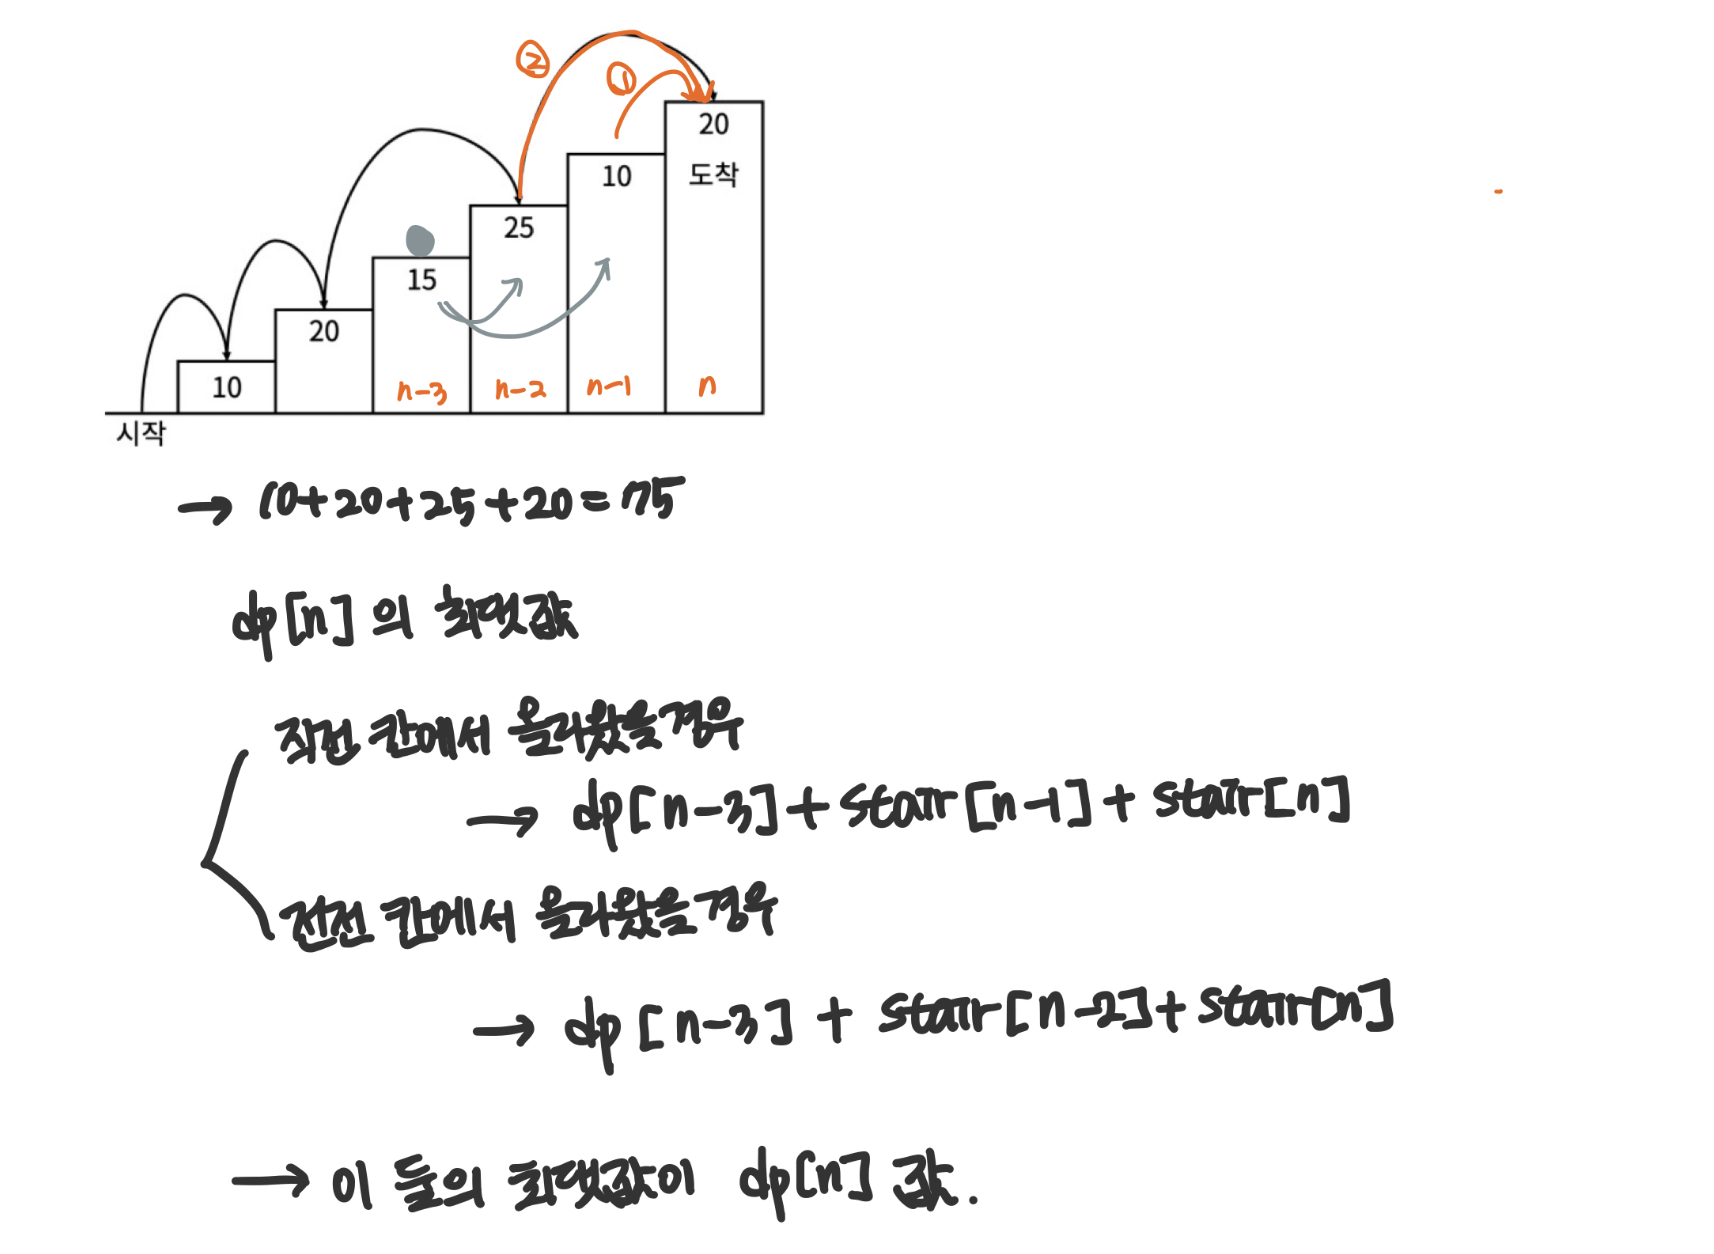 ② ①
20
도착
10
25
15
20
10
n-3 n-2 n-1 n
시작
→ 10+20+25+20=75
dp[n]의 최댓값
직전 칸에서 올라왔을 경우
→ dp[n-3]+stair[n-1]+stair[n]
전전 칸에서 올라왔을 경우
→ dp[n-3]+stair[n-2]+stair[n]
→ 이 둘의 최댓값이 dp[n] 값.